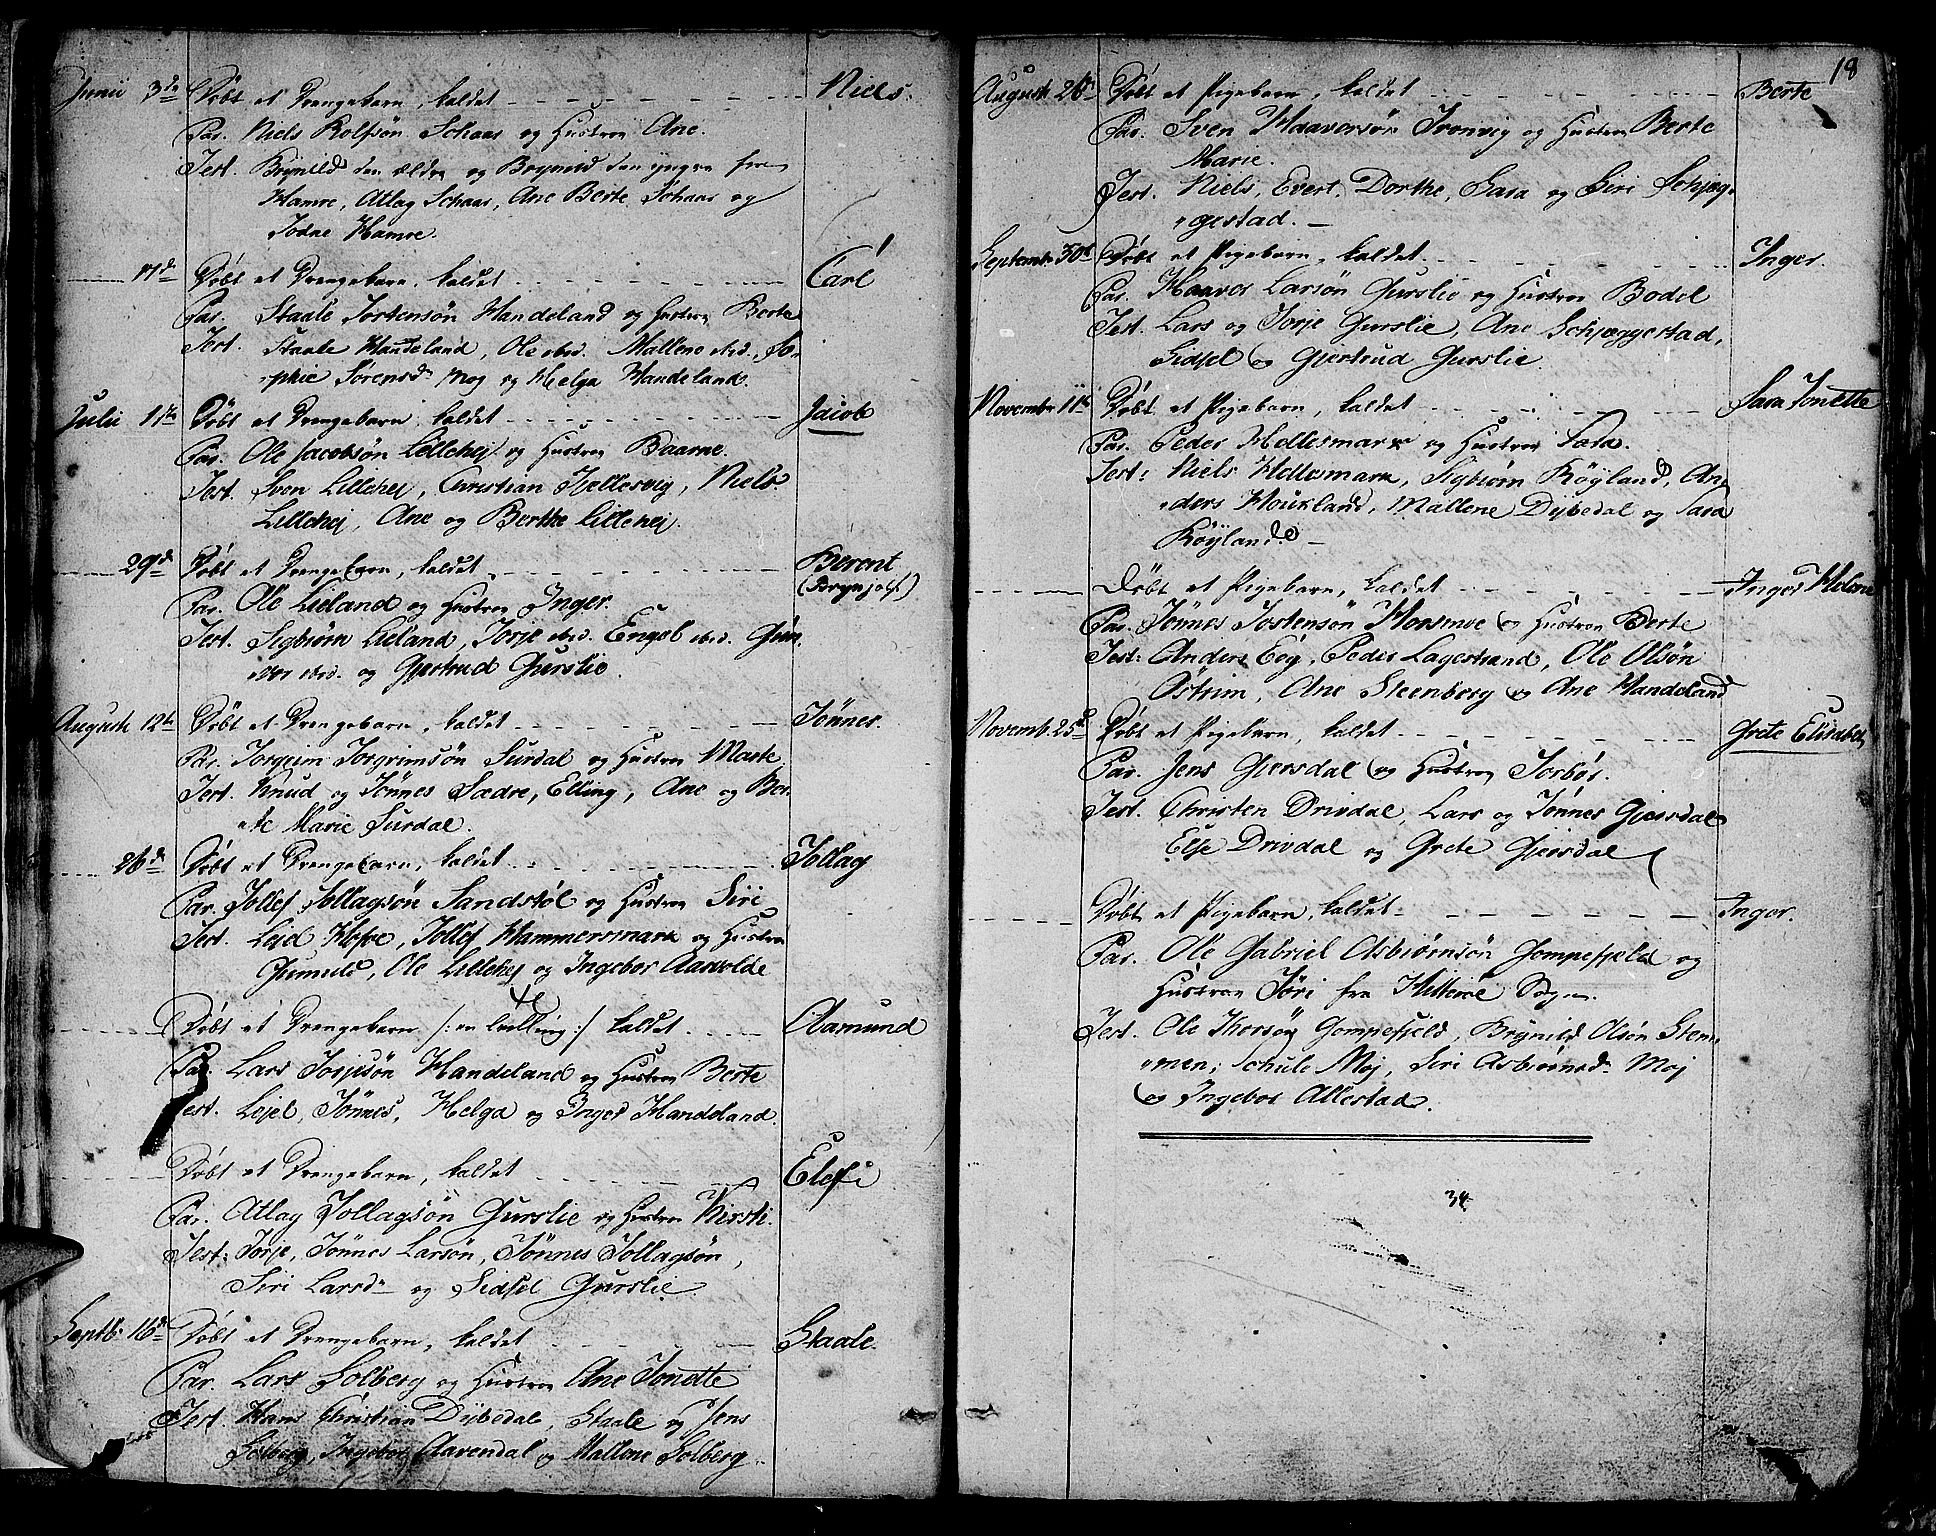 Junii 3de Döbt et Drengebarn, kaldet Niels.
Par. Niels Rolfsön Schaar og Hustroe Ane.
Test. Brynild den ældre og Brynild den yngre fra
Hamre, Atlag Schaar, Ane Berte Schaar og
Todne Hamre.
17d Döbt et Drengebarn, kaldet Carl
Par. Staale Tortensön Handeland og Hustroe Berte
Test. Staale Handeland, Ole ibid. Mallene ibid., So-
phie Sörensd. Moj og Helga Handeland.
Julii 11te Döbt et Drengebarn, kaldet Jacob
Par. Ole Jacobsön Lillehej og Hustroe Baarne.
Test. Sven Lillehej, Christian Hellesvig, Niels
Lillehej, Ane og Berthe Lillehej.
29d Döbt et Drengebarn, kaldet Berent
(Brynjolf)
Par. Ole Lieland og Hustroe Inger.
Test. Sigbiörn Lieland, Torje ibid. Engel ibid. Gun-
vor ibid. og Gjertrud Gurslie.
Augusti 12te Döbt et Drengebarn, kaldet Tönnes.
Par. Torgeim Torgrimsön Surdal og Hustroe Marte
Test. Knud og Tönnes Sædre, Elling, Ane og Ber-
te Marie Surdal.
26d Döbt et Drengebarn, kaldet Tollag
Par. Tollef Tollagsön Sandstöl og Hustroe Siri
Test. Lejel Hofre, Tollef Hammersmark og Hustroe
Gunild, Ole Lillehej og Ingebor Aarolde
Döbt et Drengebarn /: en tvilling :/ kaldet Aamund
Par. Lars Torjesön Handeland og Hustroe Berte
Test. Lejel, Tönnes, Helga og Inger Handeland.
Döbt et Drengebarn, kaldet Elef
Par. Atlag Tollagsön Gurslie og Hustroe Kirsti.
Test: Torje, Tönnes Larsön, Tönnes Tollagsön,
Siri Larsd. og Sidsel Gurslie.
Septb. 16d Döbt et Drengebarn, kaldet Staale.
Par. Lars Solberg og Hustroe Ane Tonette
Test. Hans Christian Dybedal, Staale og Jens
Solberg, Ingebor Aavendal og Mallene Solberg
18
Augusti 26d Döbt et Pigebarn, kaldet Berte
Par. Sven Haaversön Tronvig og Hustroe Berte
Marie.
Test. Niels, Evert, Dorthe, Sara og Siri Schjeg-
gestad.
Septembr 30d Döbt et Pigebarn, kaldet Inger.
Par. Haaver Larsön Gurslie og Hustroe Bodel
Test. Lars og Torje Gurslie, Ane Schjeggestad,
Sidsel og Gjertrud Gurslie.
Novembr 11te Döbt et Pigebarn, kaldet Sara Tonette
Par. Peder Hellesmark og Hustroe Sara.
Test: Niels Hellesmark, Sigbiörn Röyland, An-
ders Houkland, Mallene Dybedal og Sara
Röyland.
Döbt et Pigebarn, kaldet Inger Helene
Par. Tönnes Jostensön Horsmoe og Hustroe Berte
Test: Anders Eeg, Peder Lagestrand, Ole Olsön
Åstrim, Ane Steenberg og Ane Handeland
Novemb. 25d Döbt et Pigebarn, kaldet Grete Elisabet
Par. Jens Gjersdal og Hustroe Torbör.
Test. Christen Drivdal, Lars og Tönnes Gjersdal
Else Drivdal og Grete Gjersdal
Döbt et Pigebarn, kaldet Inger.
Par. Ole Gabriel Asbiörnsön Gompefjeld og
Hustroe Töri fra Hitteröe Sogn.
Test. Ole Iversön Gompefjeld, Brynild Olsön Stem-
men, Schule Moj, Siri Asbiörnsd. Moj
og Ingebor Allestad.
34